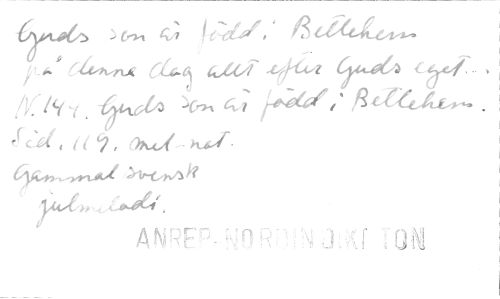 Guds son är född i Betlehem
på denna dag allt efter Guds eget...
N. 144. Guds son är född i Betlehem.
Sid. 119. mel-nat.
Gammal svensk
julmelodi.
ANREP-NORDIN DIKT TON